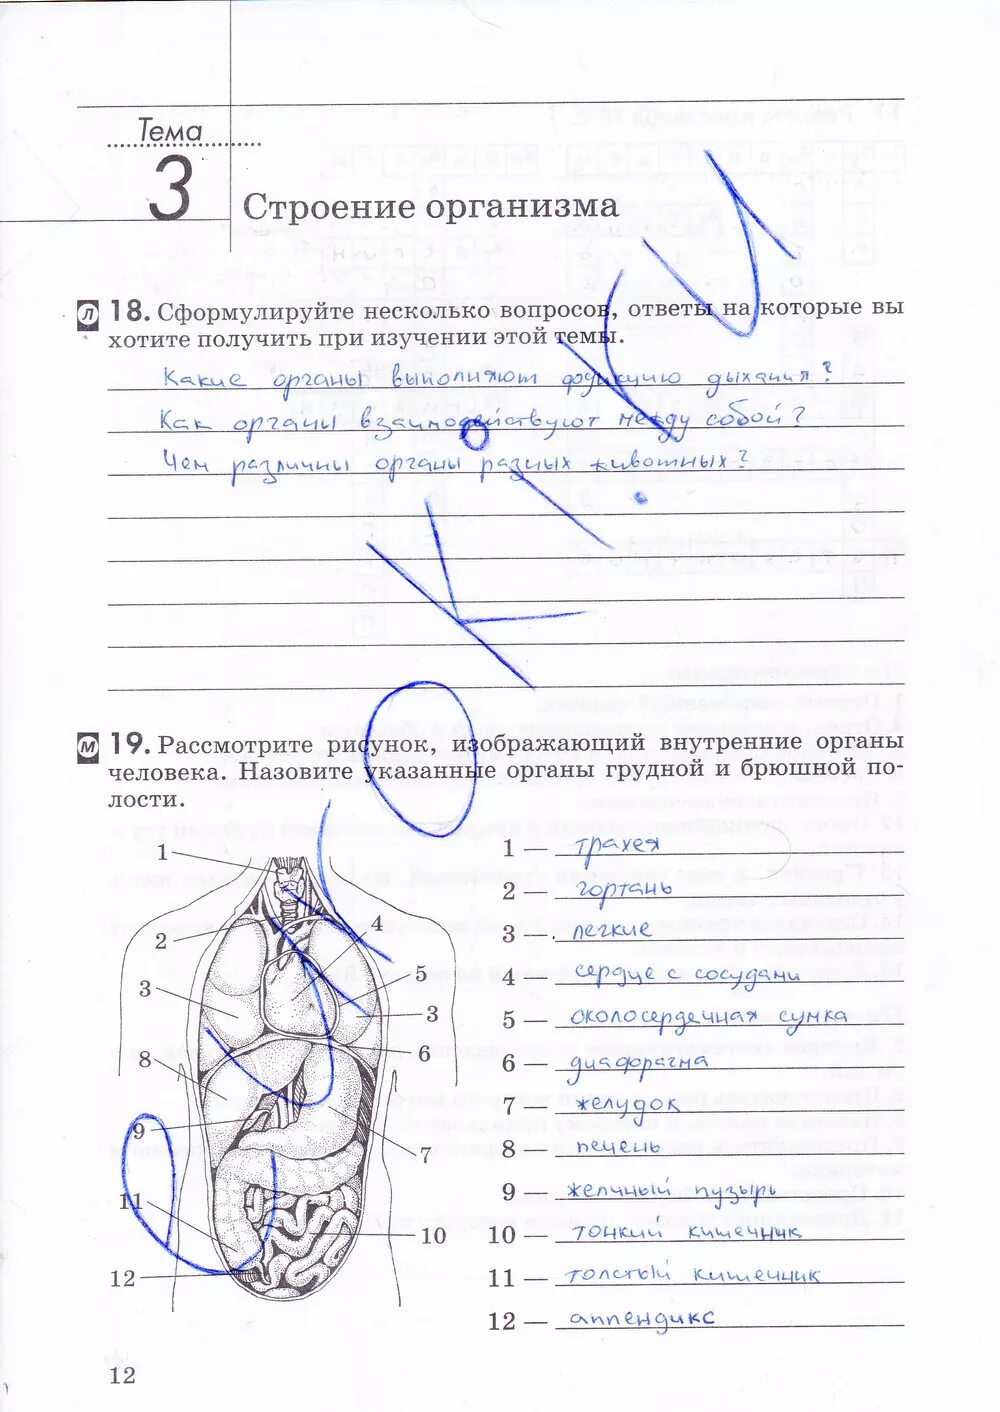 Тема
3
Строение организма
Л 18. Сформулируйте несколько вопросов, ответы на которые вы
хотите получить при изучении этой темы.
Какие органы выполняют функцию дыхания?
Как органы взаимодействуют между собой?
Чем различны органы разных животных?
М 19. Рассмотрите рисунок, изображающий внутренние органы
человека. Назовите указанные органы грудной и брюшной по-
лости.
1
2
3
4
5
3
6
8
9
7
11
10
12
1 — трахея
2 — гортань
3 — легкие
4 — сердце с сосудами
5 — околосердечная сумка
6 — диафрагма
7 — желудок
8 — печень
9 — желчный пузырь
10 — тонкий кишечник
11 — толстый кишечник
12 — аппендикс
12